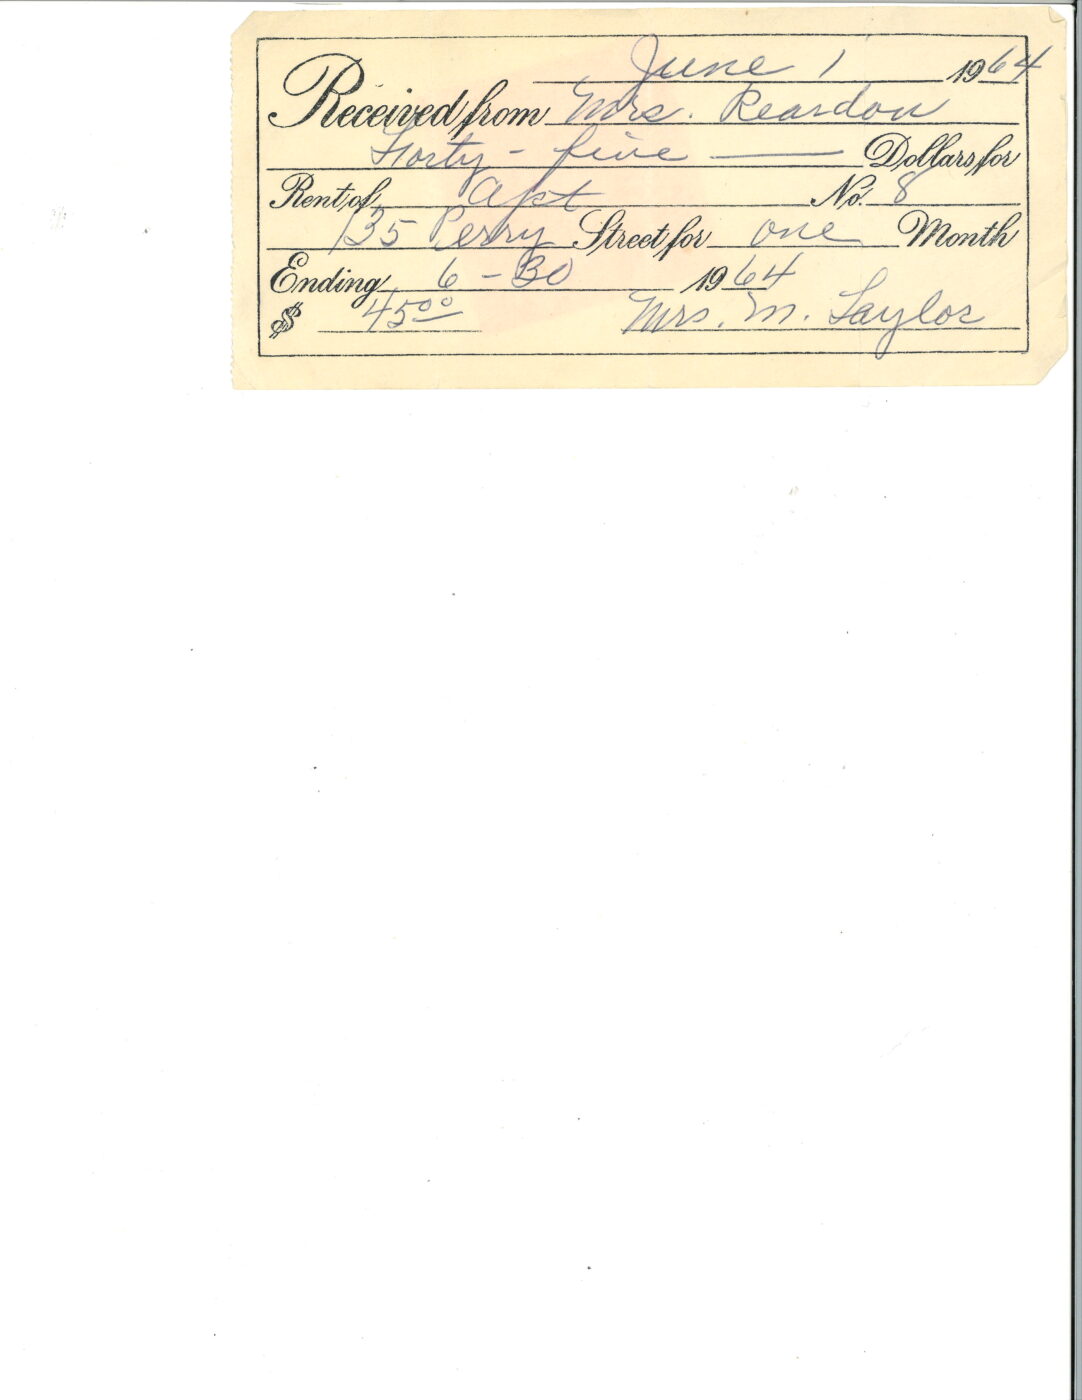 June 1 1964
Received from Mrs. Reardon
Forty-five — Dollars for
Rent of Apt No. 8
135 Perry Street for one Month
Ending 6-30 1964
$ 45.00 Mrs. M. Taylor